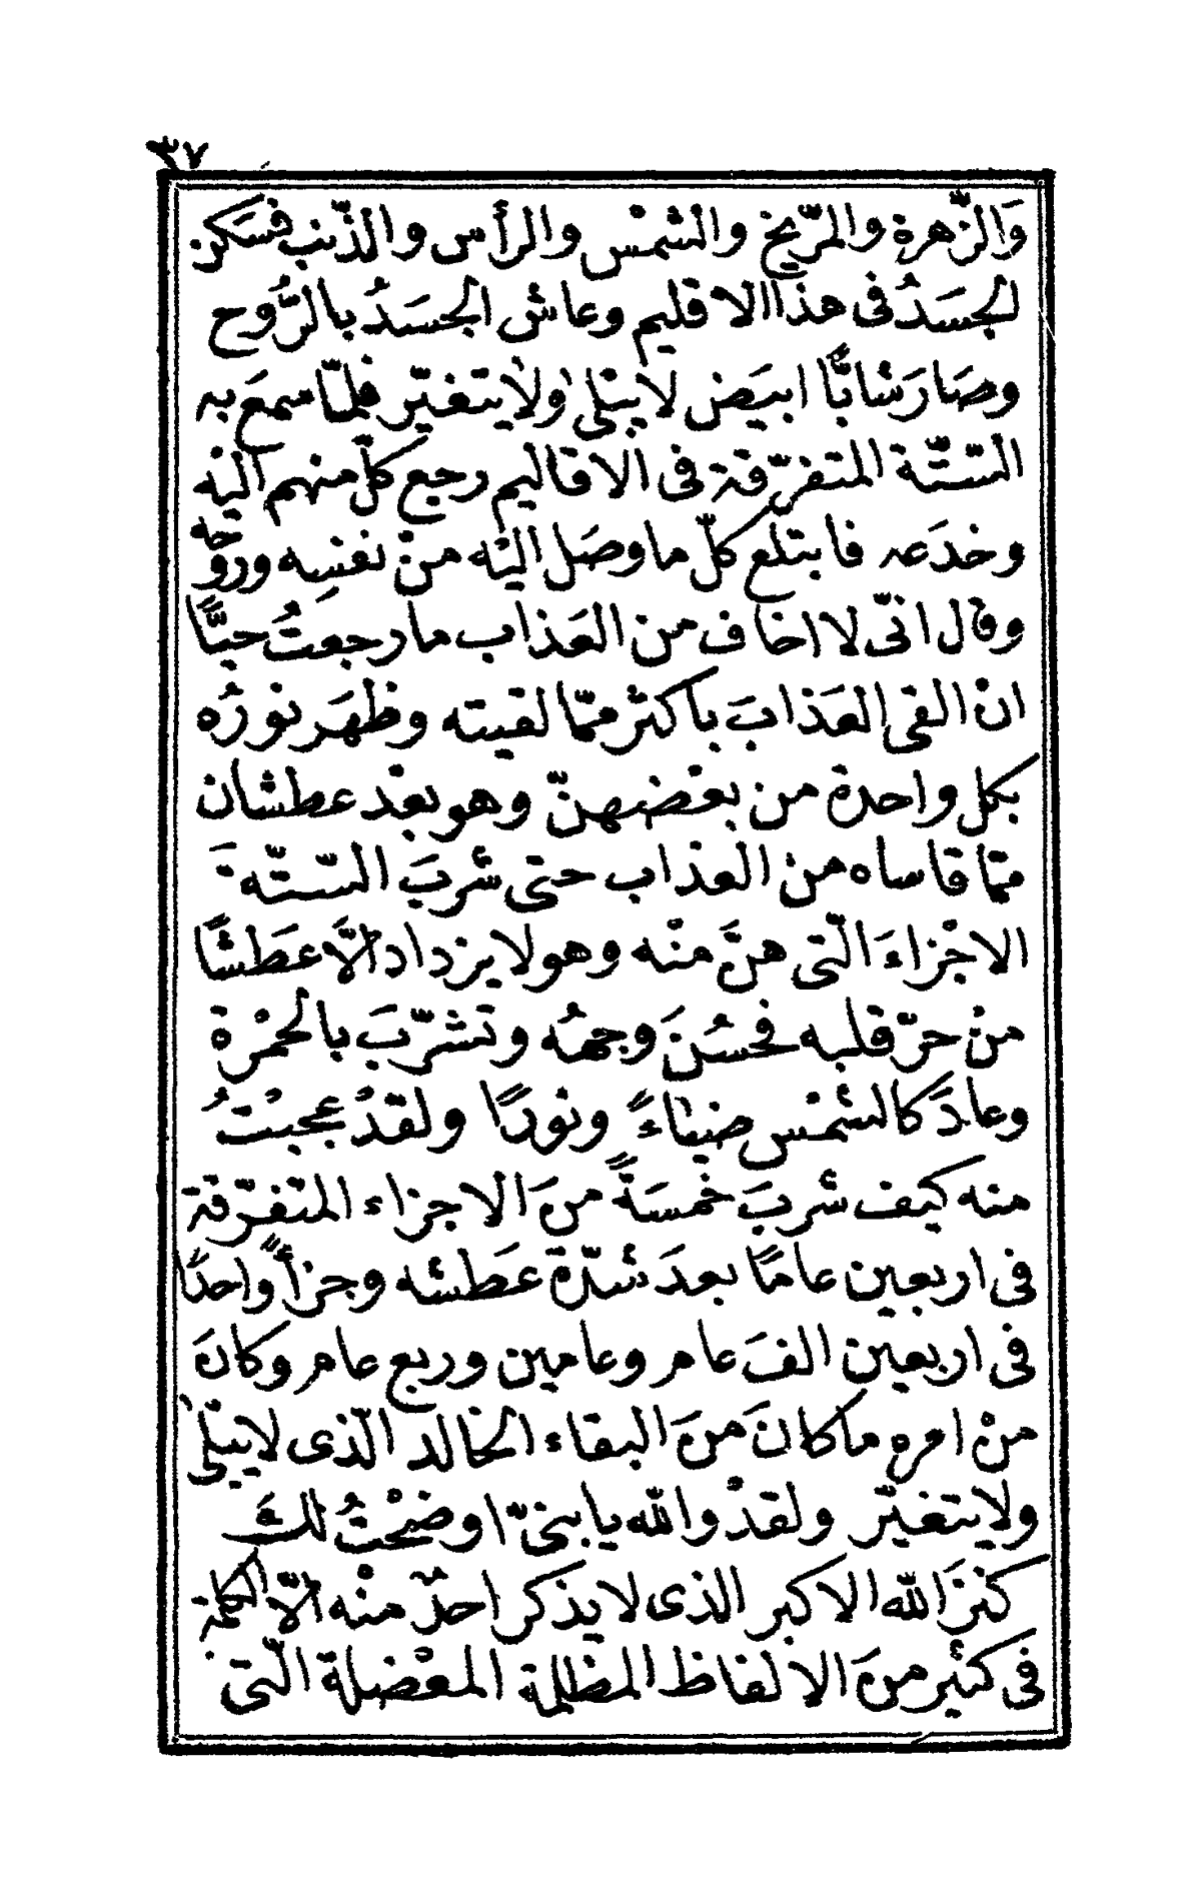 ٣٧
وَالزُّهرة والمرّيخ والشمْس والرأس والذّنب فسَكن
الجسَدُ فى هذا الاقليم وعاش الجسَدُ بالرُّوح
وصَارَ شابًّا ابيَض لا يبْلى ولا يتغيّر فلمّا سمعَ به
السّتّة المتفرّقة فى الاقاليم رجع كلّ منهم اليْه
وخدَعه فابتلع كلّ ما وصَل اليْه منْ نفسِه وروُحه
وقال انّى لا اخاف من العَذاب ما رجعتُ حيًّا
انْ القى العَذابَ باكثر ممّا لقيته وظهَر نورُه
بكل واحدة من بعْضهنّ وهو بعْد عطشان
ممّا قاساه منْ العذاب حتى شربَ السّتّةَ
الاجْزاءَ الّتى هنَّ منْه وهو لا يزداد الَّا عَطَشًا
منْ حرّ قلبه فحسُنَ وجههُ وتشرّبَ بالحمْرة
وعادَ كالشمْس ضياءً ونورًا ولقدْ عجبْتُ
منه كيف شربَ خمسَةً منَ الاجزاء المتفرّقة
فى اربعين عامًا بعدَ شدّة عَطَشه وجزأً واحدًا
فى اربعين الفَ عام وعامين وربع عام وكانَ
منْ امره ما كانَ منَ البقاء الخالد الّذى لا يبْلى
ولا يتغيّر ولقدْ والله يا بنىّ اوضحْتُ لكَ
كنزَ الله الاكبر الذى لا يذكر احدٌ منْه الّا الكلمة
فى كثير منَ الالفاظ المظلمة المعْضلة الّتى